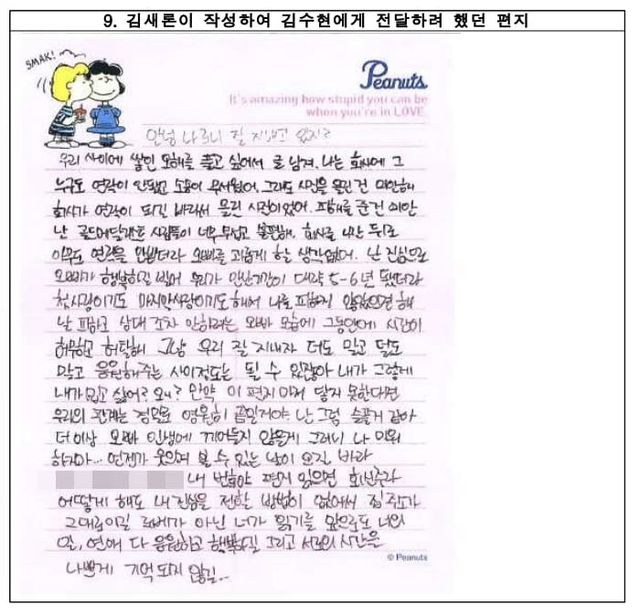 9. 김새론이 작성하여 김수현에게 전달하려 했던 편지
SMAK!
Peanuts
It's amazing how stupid you can be
when you're in LOVE.
안녕 나 잘 지내고 있지?
우리 사이에 쌓인 오해를 풀고 싶어서 글 남겨. 나는 회사에 그
누구도 연락이 안됐고 소송이 무서웠어. 그래도 사진을 올린 건 미안해
회사가 연락이 되길 바라서 올린 사진이었어. 피해를 준건 미안
난 골드메달리스트 사람들이 너무 무섭고 불편해. 회사를 나간 뒤로
아무도 연락을 안받더라 오빠를 괴롭게 할 생각 없어. 난 진심으로
오빠가 행복하길 빌어 우리가 만난기간이 대략 5-6년 됐더라
첫사랑이기도 마지막사랑이기도 해서 나를 피하지 않았으면 해
날 피하고 상대 조차 안하려는 오빠 모습에 그동안에 시간이
허무하고 허탈해 그냥 우리 잘 지내자 더도 말고 덜도
말고 응원해주는 사이정도는 될 수 있잖아 내가 그렇게
내가 밉고 싫어? 왜? 만약 이 편지마저 닿지 못한다면
우리의 관계는 정말로 영원히 끝일거야. 난 그럼 슬플거 같아
더 이상 오빠 인생에 끼어들지 않을게 그러니 나 미워
하지마... 언젠가 웃으며 볼 수 있는 날이 오길 바라
내 번호야 편지 읽으면 회신주라
어떻게 해도 내 진심을 전할 방법이 없어서 집 주소가
그대로이길 로베가 아닌 너가 읽기를 앞으로도 너의
일, 연애 다 응원하고 행복하길 그리고 서로의 시간을
나쁘게 기억되지 않길...
© Peanuts